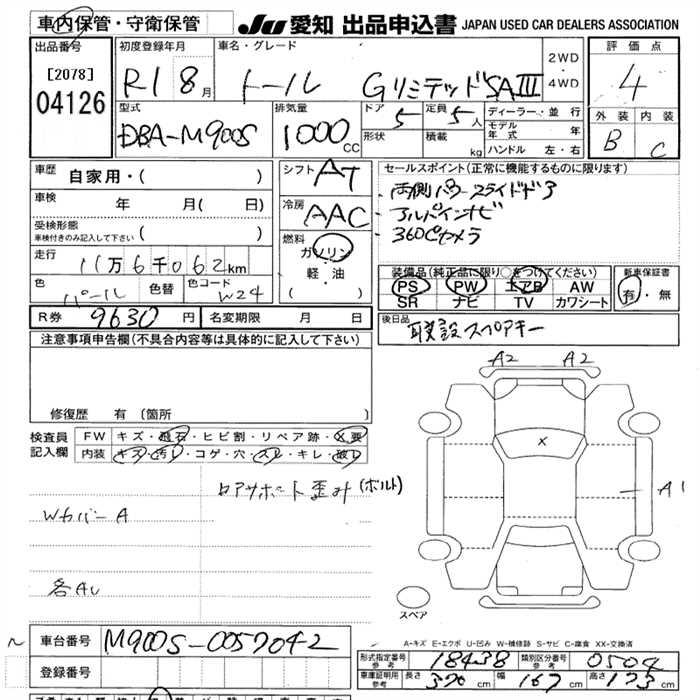 車内保管・守衛保管
JU 愛知 出品申込書 JAPAN USED CAR DEALERS ASSOCIATION
出品番号
[2078]
04126
初度登録年月
R1 8月
車名・グレード
トール GリミテッドSAIII
2WD
・
4WD
評価点
4
外装 内装
B C
型式
DBA-M900S
排気量
1000cc
ドア 5
定員 5人
形状
積載 kg
ディーラー・並行
モデル年式 年
ハンドル 左・右
車歴 自家用・( )
車検 年 月( 日)
受検形態
車検付きのみ記入して下さい ( )
走行 11万6千062km
色 パール
色替
色コード W24
シフト AT
冷房 AAC
燃料
ガソリン
軽・油
( )
セールスポイント(正常に機能するものに限ります)
・両側パワースライドドア
・アルパインナビ
・360°カメラ
装備品(純正品に限り○をつけてください)
PS PW エアB AW
SR ナビ TV カワシート
新車保証書
有・無
R券 9630円
名変期限 月 日
後日品
取説 スペアキー
注意事項申告欄(不具合内容等は具体的に記入して下さい)
修復歴 有(箇所 )
検査員記入欄
FW キズ・飛石・ヒビ割・リペア跡・X要
内装 キズ・汚れ・コゲ・穴・スレ・キレ・破れ
ロアサポート歪み(ボルト)
Wカバー A
各AU
A2 A2
X
A1
スペア
A-キズ E-エクボ U-凹み W-補修跡 S-サビ C-腐食 XX-交換済
車台番号 M900S-0057042
登録番号
形式指定番号 参考 18438
類別区分番号 参考 0504
車庫証明用 参考 長さ 370cm 幅 167cm 高さ 173cm